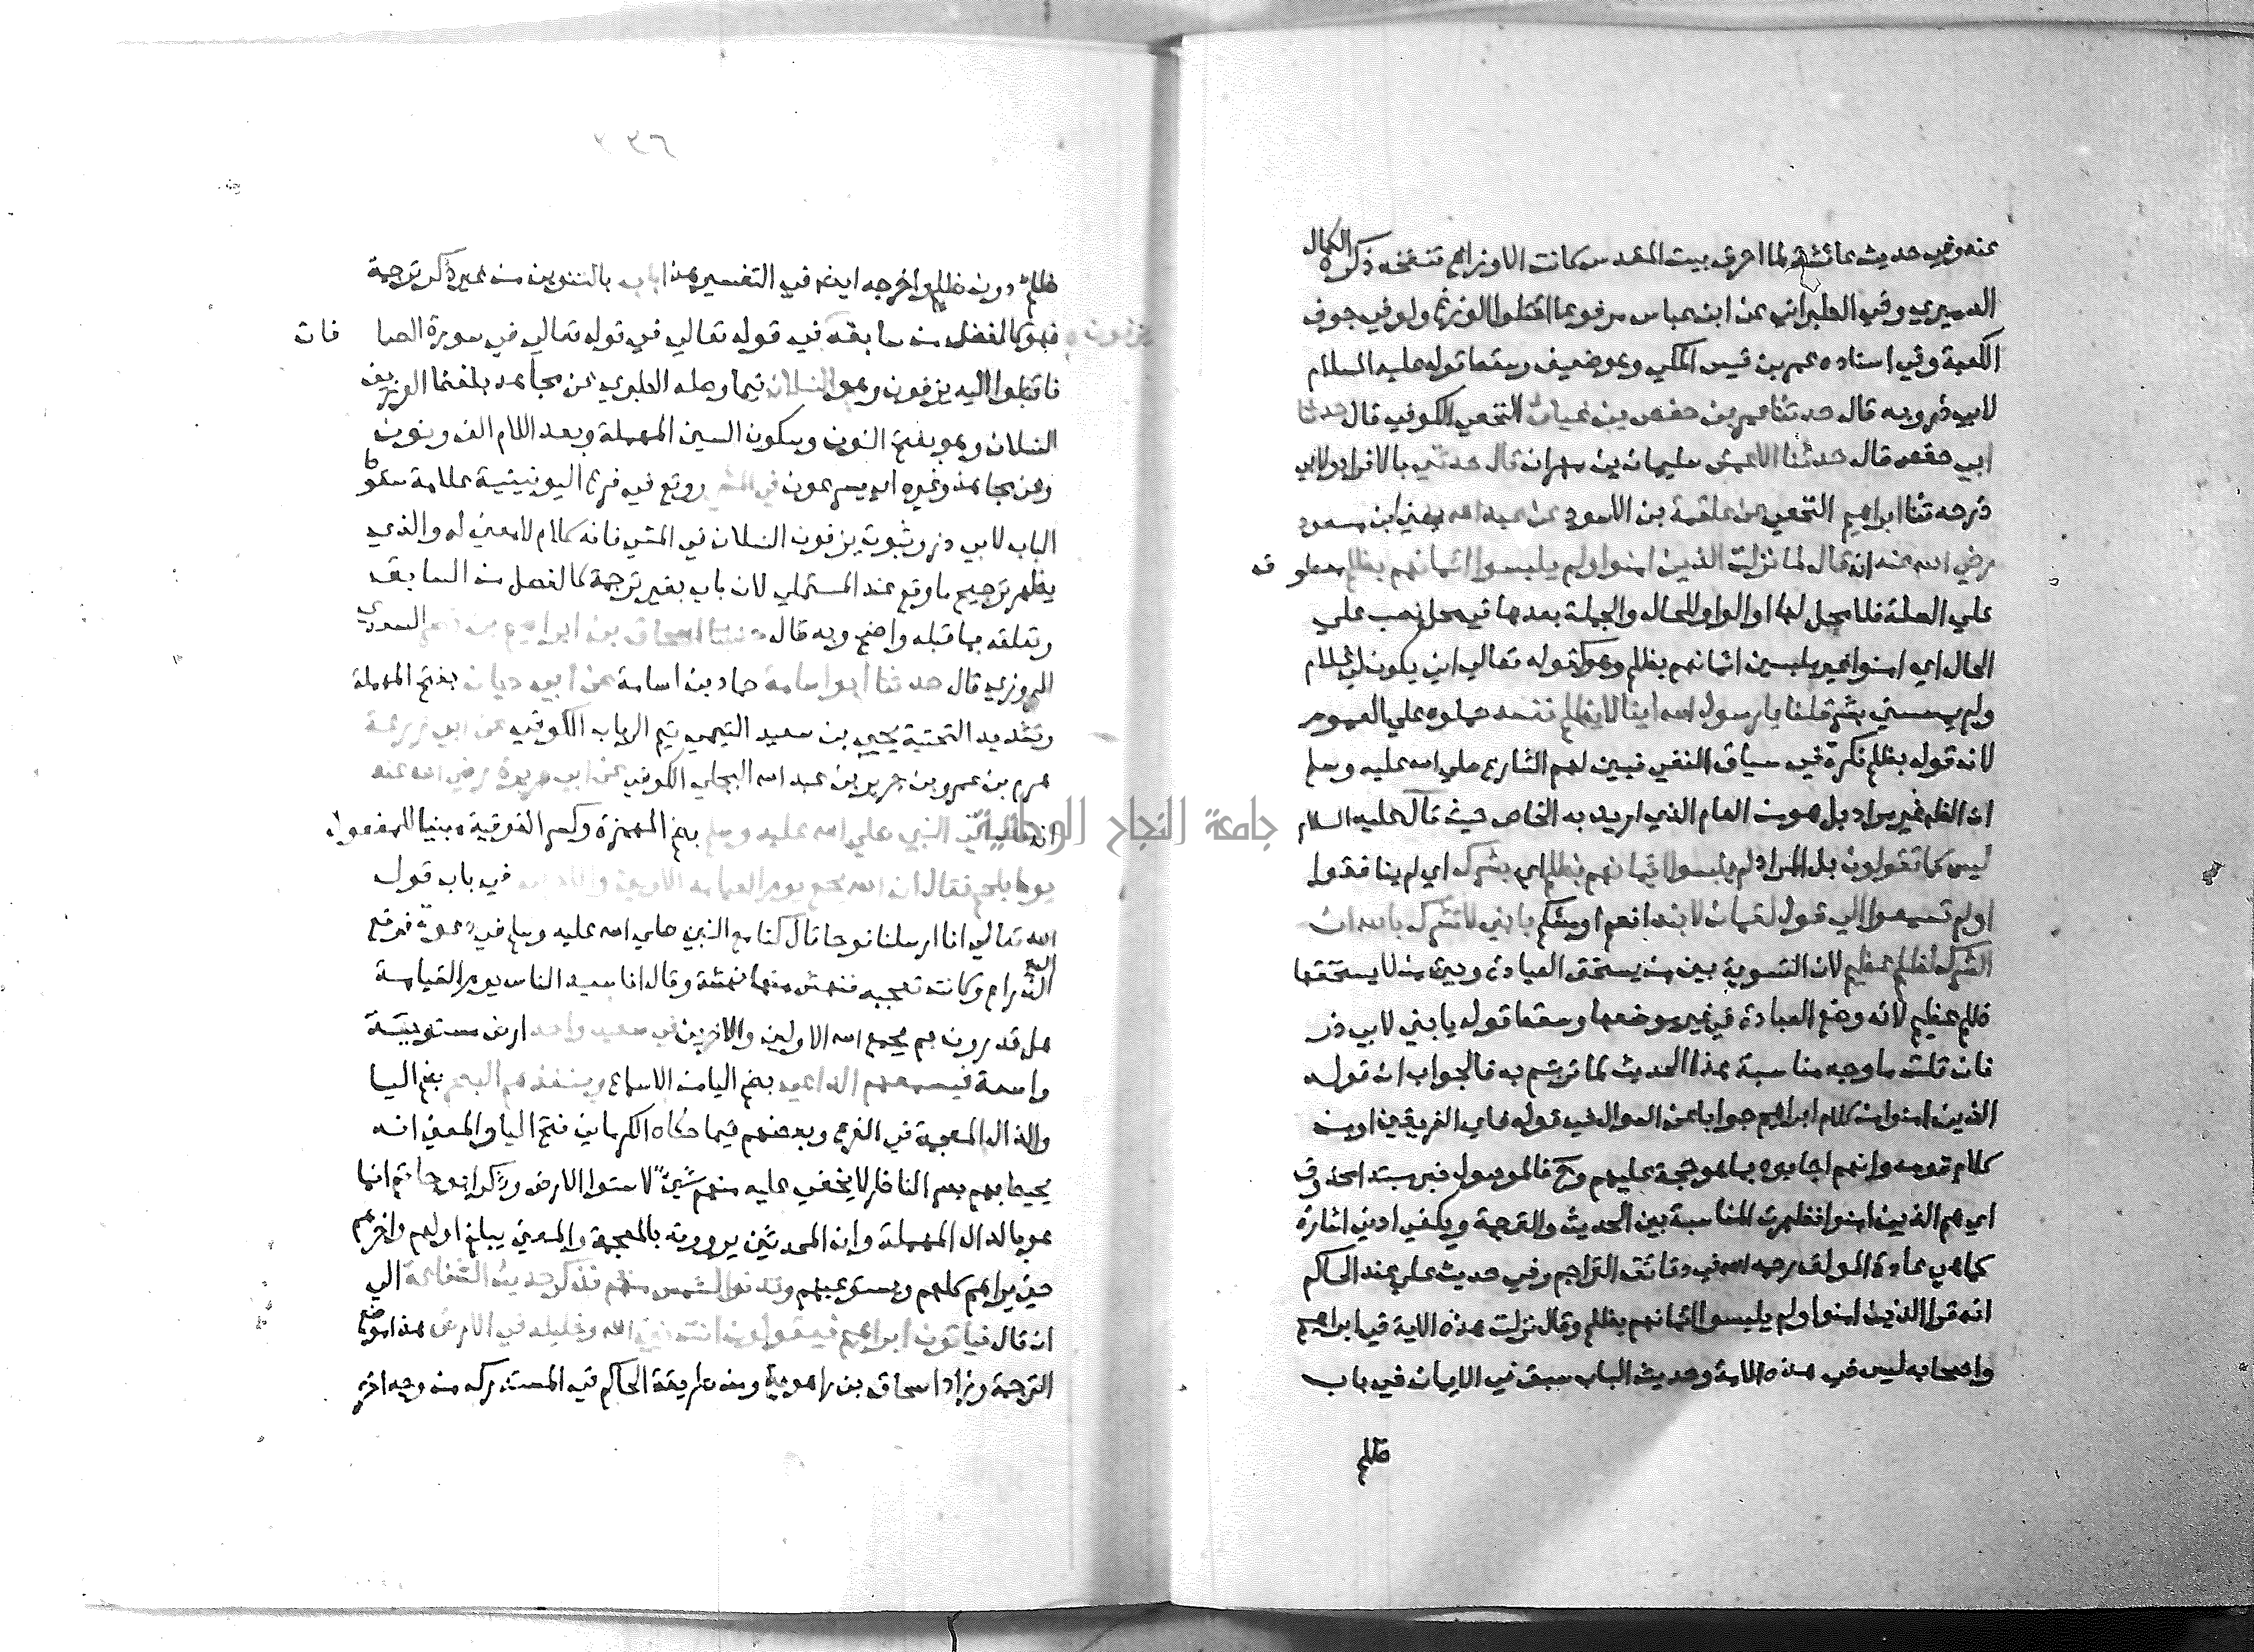 عنه وفي حديث عائشة لما احرق بيت المقدس كانت الاوزاع تنفخه ذكره الكمال
الدميري وفي الطبراني عن ابن عباس مرفوعا اقتلوا الوزغ ولو في جوف
الكعبة وفي اسناده عمر بن قيس المكي وهو ضعيف وسقط قوله عليه السلام
لابي ذر وبه قال حدثنا عمر بن حفص بن غياث النخعي الكوفي قال حدثنا
ابي حفص قال حدثنا الاعمش سليمان بن مهران قال حدثني بالافراد ولابي
ذر حدثنا ابراهيم النخعي عن علقمة بن الاسود عن عبد الله يعني ابن مسعود
رضي الله عنه انه قال لما نزلت الذين امنوا ولم يلبسوا ايمانهم بظلم معطوف
علي الصلة فلا محل لها او الواو للحال والجملة بعدها في محل نصب علي
الحال اي امنوا غير ملبسين ايمانهم بظلم وهو كقوله تعالي اني يكون لي غلام
ولم يمسسني بشر قلنا يا رسول الله اينا لا يظلم نفسه حملوه علي العموم
لان قوله بظلم نكرة في سياق النفي فبين لهم الشارع صلي الله عليه وسلم
ان الظاهر غير مراد بل هو من العام الذي اريد به الخاص حيث قال عليه السلام
ليس كما تقولون بل المراد لم يلبسوا ايمانهم بظلم اي بشرك اي لم ينافقوا
اولم تسمعوا الي قول لقمان لابنه انعم او مشكم يا بني لا تشرك بالله ان
الشرك لظلم عظيم لان التسوية بين من يستحق العبادة وبين من لا يستحقها
ظلم عظيم لانه وضع العبادة في غير موضعها وسقط قوله يا بني لابي ذر
فان قلت ما وجه مناسبة هذا الحديث لما ترجم به فالجواب ان قوله
الذين امنوا من كلام ابراهيم جوابا عن السوال في قوله فاي الفريقين او من
كلام قومه وانهم اجابوه بما هو حجة عليهم وح فالموصول خبر مبتدا محذوف
اي هم الذين امنوا فظهرت المناسبة بين الحديث والترجمة ويكفي ادني اشارة
كما هي عادة المولف رحمه الله في دقائق التراجم وفي حديث علي عند الحاكم
انه قرا الذين امنوا ولم يلبسوا ايمانهم بظلم وقال نزلت هذه الاية في ابراهيم
واصحابه ليس في هذه الامة وحديث الباب سبق في الايمان في باب
ظلم
٣٣٦
ظلم دون ظلم واخرجه ايضا في التفسير هذا باب بالتنوين من غير ذكر ترجمة
فهو كالفصل من سابقه في قوله تعالي في قوله تعالي في سورة الصافات
فاقبلوا اليه يزفون وهو النسلان فيما وصله الطبري عن مجاهد بلفظ الوزيف
النسلان وهو بفتح النون وسكون السين المهملة وبعد اللام الف ونون
وعن مجاهد وغيره اي يسرعون في المشي ووقع في فرع اليونينية علامة سقوط
الباب لابي ذر وثبوت يزفون النسلان في المشي فانه كلام لا معني له والذي
يظهر ترجيح ما وقع عند المستملي لان باب بغير ترجمة كالفصل من السابق
وتعلقه بما قبله واضح وبه قال حدثنا اسحاق بن ابراهيم بن نصر السعدي
المروزي قال حدثنا ابو اسامة حماد بن اسامة عن ابي حيان بفتح المهملة
وتشديد التحتية يحيي بن سعيد التيمي تيم الرباب الكوفي عن ابي زرعة
هرم بن عمرو بن جرير بن عبد الله البجلي الكوفي عن ابي هريرة رضي الله عنه
انه قال اتي النبي صلي الله عليه وسلم بضم الهمزة وكسر الفوقية مبنيا للمفعول
يوما بلحم فقال ان الله يجمع يوم القيامة الاولين والاخرين في باب قول
الله تعالي انا ارسلنا نوحا قال كنا مع النبي صلي الله عليه وسلم في دعوة فرفع
اليه الذراع وكانت تعجبه فنهش منها نهشة وقال انا سيد الناس يوم القيامة
هل تدرون بم يجمع الله الاولين والاخرين في صعيد واحد ارض مستوية
واسعة فيسمعهم الداعي بضم اليا من الاسماع وينفذهم البصر بضم اليا
والذال المعجمة في الفرع وبعضهم فيما حكاه الكرماني فتح اليا والمعني انه
يحيط بهم بصر الناظر لا يخفي عليه منهم شيئ لاستوا الارض وذكر ابو حاتم انما
هو بالدال المهملة وان المحدثين يروونه بالمعجمة والمعني يبلغ اولهم واخرهم
حتي يراهم كلهم ويستوعبهم وتدنوا الشمس منهم فذكر حديث الشفاعة الي
ان قال فياتون ابراهيم فيقولون انت نبي الله وخليله في الارض هذا موضع
الترجمة وزاد اسحاق بن راهوية ومن طريقه الحاكم في المستدرك من وجه اخر
جامعة النجاح الوطنية